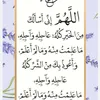 اللَّهُمَّ إِنِّي أَسْأَلُكَ
مِنَ الْخَيْرِ كُلِّهِ عَاجِلِهِ وَآجِلِهِ
مَا عَلِمْتُ مِنْهُ وَمَا لَمْ أَعْلَمْ
وَأَعُوذُ بِكَ مِنَ الشَّرِّ كُلِّهِ
عَاجِلِهِ وَآجِلِهِ
مَا عَلِمْتُ مِنْهُ وَمَا لَمْ أَعْلَمْ